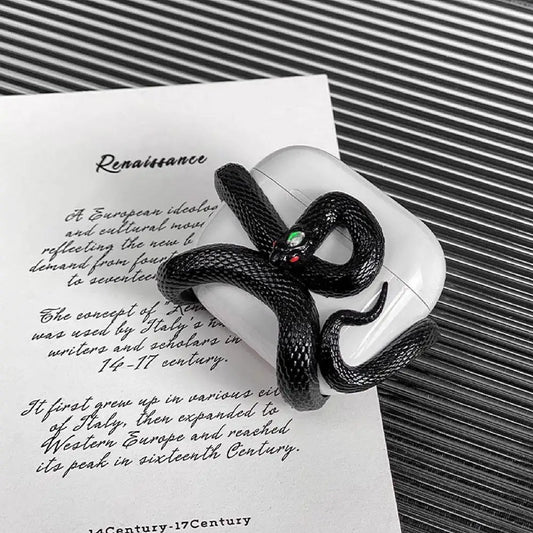 Renaissance
A European ideolo
and cultural mov
reflecting the new b
demand from four
to seventee
The concept of Ren
was used by Italy's h
writers and scholars in
14-17 century.
It first grew up in various cit
of Italy, then expanded to
Western Europe and reached
its peak in sixteenth Century.
14Century-17Century